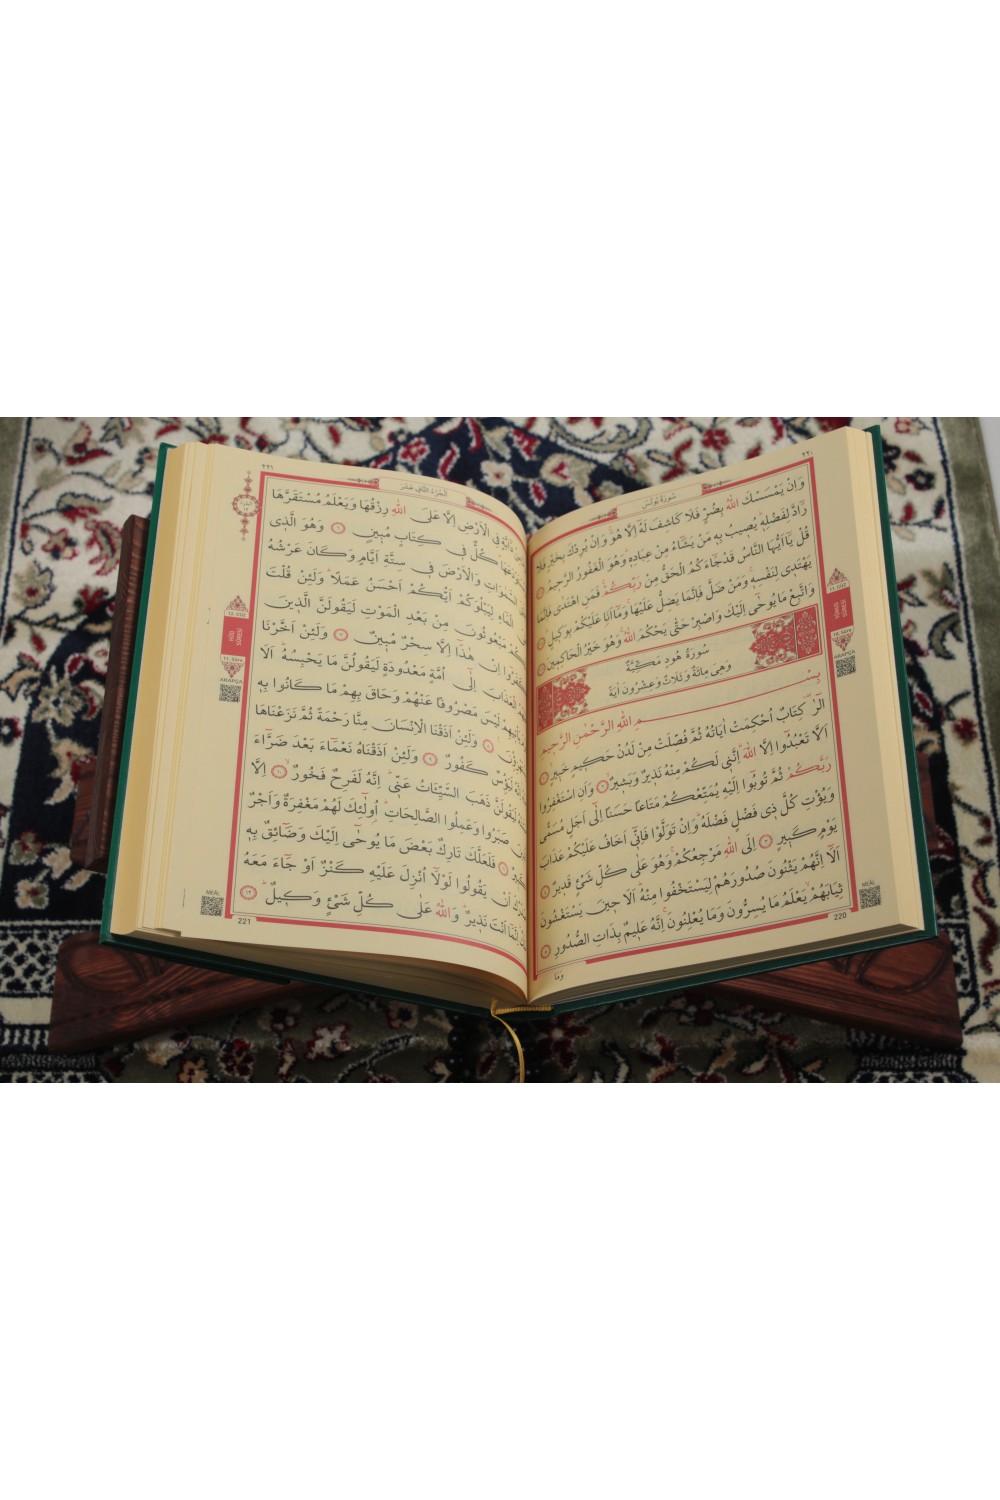 ٢٢٠
سُورَةُ يُونُسَ
وَاِنْ يَمْسَسْكَ اللّٰهُ بِضُرٍّ فَلَا كَاشِفَ لَهُٓ اِلَّا هُوَۚ وَاِنْ يُرِدْكَ بِخَيْرٍ فَلَا
رَٓادَّ لِفَضْلِه۪ۜ يُص۪يبُ بِه۪ مَنْ يَشَٓاءُ مِنْ عِبَادِه۪ۜ وَهُوَ الْغَفُورُ الرَّح۪يمُ
قُلْ يَٓا اَيُّهَا النَّاسُ قَدْ جَٓاءَكُمُ الْحَقُّ مِنْ رَبِّكُمْۚ فَمَنِ اهْتَدٰى فَاِنَّمَا
يَهْتَد۪ي لِنَفْسِه۪ۚ وَمَنْ ضَلَّ فَاِنَّمَا يَضِلُّ عَلَيْهَاۚ وَمَٓا اَنَا۬ عَلَيْكُمْ بِوَك۪يلٍۜ
وَاتَّبِعْ مَا يُوحٰٓى اِلَيْكَ وَاصْبِرْ حَتّٰى يَحْكُمَ اللّٰهُۚ وَهُوَ خَيْرُ الْحَاكِم۪ينَ
سُورَةُ هُودٍ مَكِّيَّةٌ
وَهِيَ مِائَةٌ وَثَلَاثٌ وَعِشْرُونَ اٰيَةً
بِسْمِ اللّٰهِ الرَّحْمٰنِ الرَّح۪يمِ
الٓرٰ۠ كِتَابٌ اُحْكِمَتْ اٰيَاتُهُ ثُمَّ فُصِّلَتْ مِنْ لَدُنْ حَك۪يمٍ خَب۪يرٍۙ ١
اَلَّا تَعْبُدُٓوا اِلَّا اللّٰهَۜ اِنَّن۪ي لَكُمْ مِنْهُ نَذ۪يرٌ وَبَش۪يرٌۙ ٢ وَاَنِ اسْتَغْفِرُوا
رَبَّكُمْ ثُمَّ تُوبُٓوا اِلَيْهِ يُمَتِّعْكُمْ مَتَاعًا حَسَنًا اِلٰٓى اَجَلٍ مُسَمًّى
وَيُؤْتِ كُلَّ ذ۪ي فَضْلٍ فَضْلَهُۜ وَاِنْ تَوَلَّوْا فَاِنّ۪ٓي اَخَافُ عَلَيْكُمْ عَذَابَ
يَوْمٍ كَب۪يرٍ ٣ اِلَى اللّٰهِ مَرْجِعُكُمْۚ وَهُوَ عَلٰى كُلِّ شَيْءٍ قَد۪يرٌ ٤
اَلَٓا اِنَّهُمْ يَثْنُونَ صُدُورَهُمْ لِيَسْتَخْفُوا مِنْهُۜ اَلَا ح۪ينَ يَسْتَغْشُونَ
ثِيَابَهُمْۙ يَعْلَمُ مَا يُسِرُّونَ وَمَا يُعْلِنُونَۚ اِنَّهُ عَل۪يمٌ بِذَاتِ الصُّدُورِ ٥
وَمَا
11. CÜZ
YÛNUS
SÛRESİ
10. Sûre
ARAPÇA
MEÂL
220
٢٢١
اَلْجُزْءُ الثَّانِي عَشَرَ
دَٓابَّةٍ فِي الْاَرْضِ اِلَّا عَلَى اللّٰهِ رِزْقُهَا وَيَعْلَمُ مُسْتَقَرَّهَا
كُلٌّ ف۪ي كِتَابٍ مُب۪ينٍ ٦ وَهُوَ الَّذ۪ي
السَّمٰوَاتِ وَالْاَرْضَ ف۪ي سِتَّةِ اَيَّامٍ وَكَانَ عَرْشُهُ
الْمَٓاءِ لِيَبْلُوَكُمْ اَيُّكُمْ اَحْسَنُ عَمَلًاۜ وَلَئِنْ قُلْتَ
مَبْعُوثُونَ مِنْ بَعْدِ الْمَوْتِ لَيَقُولَنَّ الَّذ۪ينَ
كَفَرُٓوا اِنْ هٰذَٓا اِلَّا سِحْرٌ مُب۪ينٌ ٧ وَلَئِنْ اَخَّرْنَا
الْعَذَابَ اِلٰٓى اُمَّةٍ مَعْدُودَةٍ لَيَقُولُنَّ مَا يَحْبِسُهُۜ اَلَا
لَيْسَ مَصْرُوفًا عَنْهُمْ وَحَاقَ بِهِمْ مَا كَانُوا بِه۪
٨ وَلَئِنْ اَذَقْنَا الْاِنْسَانَ مِنَّا رَحْمَةً ثُمَّ نَزَعْنَاهَا
لَيَؤُ۫سٌ كَفُورٌ ٩ وَلَئِنْ اَذَقْنَاهُ نَعْمَٓاءَ بَعْدَ ضَرَّٓاءَ
لَيَقُولَنَّ ذَهَبَ السَّيِّـَٔاتُ عَنّ۪يۜ اِنَّهُ لَفَرِحٌ فَخُورٌۙ ١٠ اِلَّا
صَبَرُوا وَعَمِلُوا الصَّالِحَاتِۜ اُو۬لٰٓئِكَ لَهُمْ مَغْفِرَةٌ وَاَجْرٌ
١١ فَلَعَلَّكَ تَارِكٌ بَعْضَ مَا يُوحٰٓى اِلَيْكَ وَضَٓائِقٌ بِه۪
اَنْ يَقُولُوا لَوْلَٓا اُنْزِلَ عَلَيْهِ كَنْزٌ اَوْ جَٓاءَ مَعَهُ
اِنَّمَٓا اَنْتَ نَذ۪يرٌۜ وَاللّٰهُ عَلٰى كُلِّ شَيْءٍ وَك۪يلٌۜ ١٢
12. CÜZ
HÛD
SÛRESİ
11. Sûre
ARAPÇA
MEÂL
221